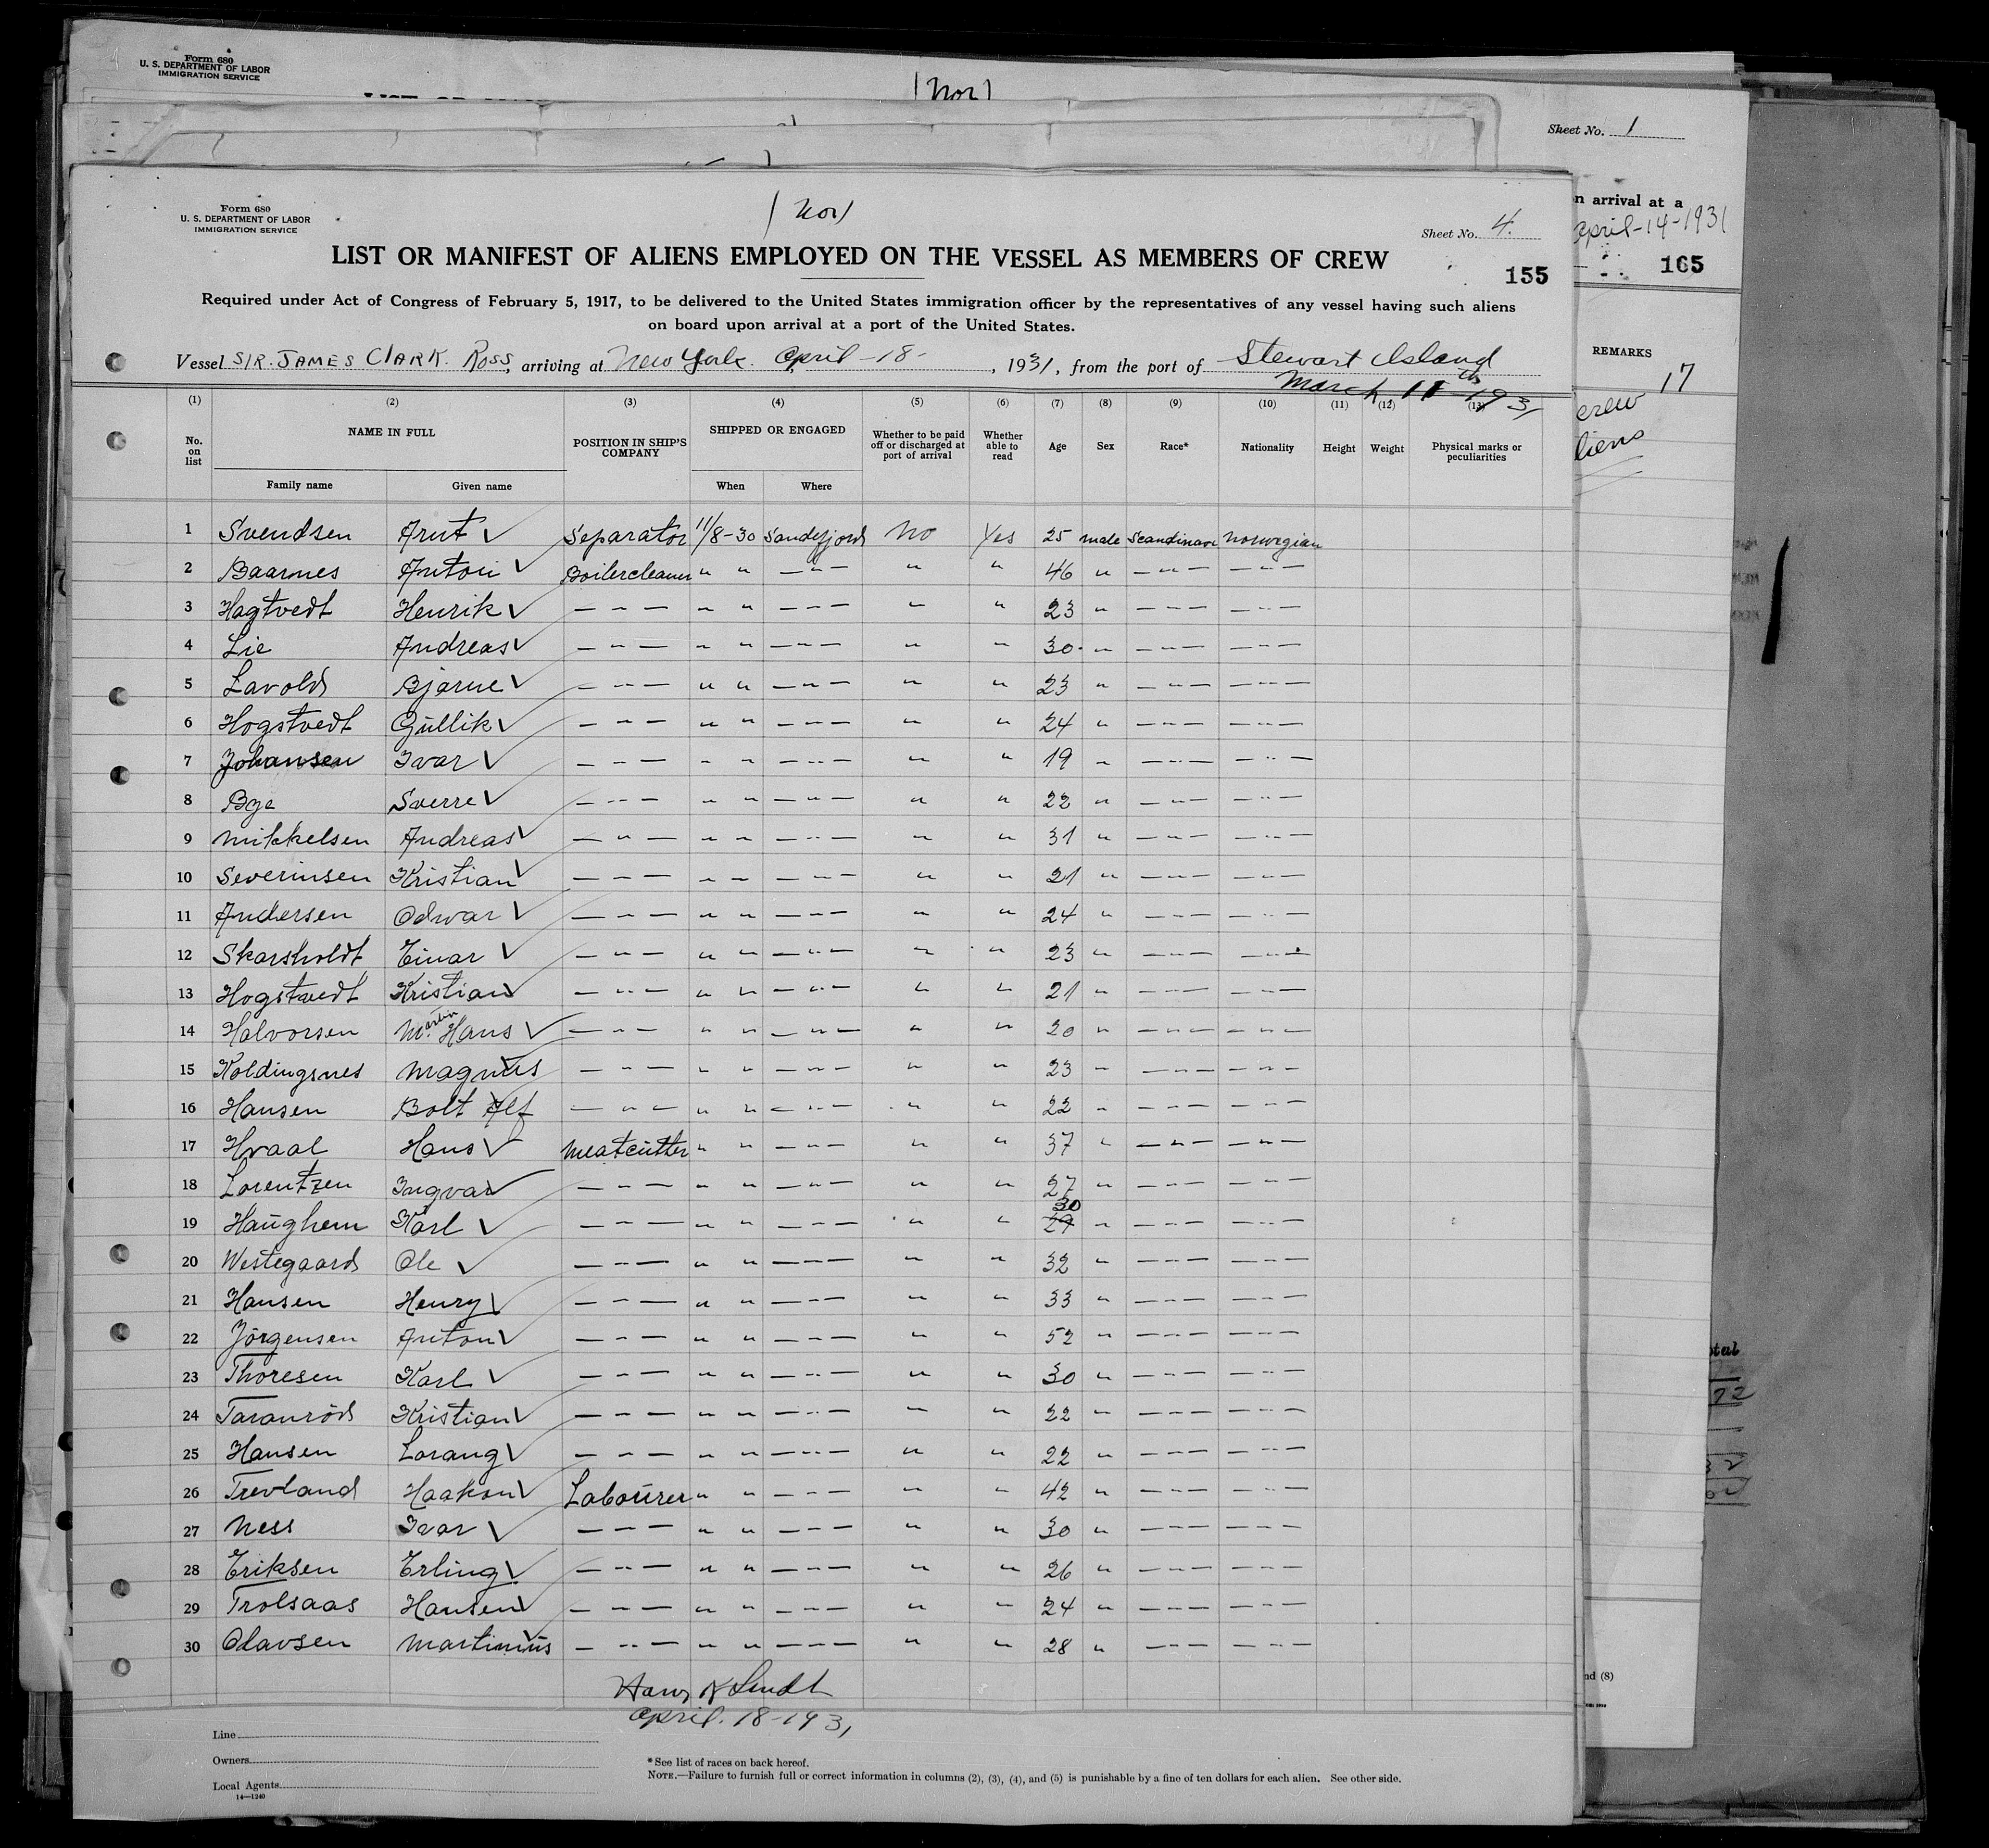 Form 680
U. S. DEPARTMENT OF LABOR
IMMIGRATION SERVICE
(Nor)
Sheet No. 1
n arrival at a
April-14-1931
165
REMARKS
17
crew
liens
Form 680
U. S. DEPARTMENT OF LABOR
IMMIGRATION SERVICE
(Nor)
Sheet No. 4.
LIST OR MANIFEST OF ALIENS EMPLOYED ON THE VESSEL AS MEMBERS OF CREW
155
Required under Act of Congress of February 5, 1917, to be delivered to the United States immigration officer by the representatives of any vessel having such aliens
on board upon arrival at a port of the United States.
Vessel SIR. JAMES CLARK. ROSS, arriving at New York. April-18-, 1931, from the port of Stewart Island
March 11th 1931
(1) (2) (3) (4) (5) (6) (7) (8) (9) (10) (11) (12) (13)
No. on list NAME IN FULL POSITION IN SHIP'S COMPANY SHIPPED OR ENGAGED Whether to be paid off or discharged at port of arrival Whether able to read Age Sex Race* Nationality Height Weight Physical marks or peculiarities
Family name Given name When Where
1 Svendsen Arnt ✓ Separator 11/8-30 Sandefjord No Yes 25 male Scandinav Norwegian
2 Baarnes Anton ✓ Boilercleaner " " — " — " " 46 " — " — — " —
3 Hagtvedt Henrik ✓ — " — " " — " — " " 23 " — " — — " —
4 Lie Andreas ✓ — " — " " — " — " " 30 " — " — — " —
5 Lavold Bjarne ✓ — " — " " — " — " " 23 " — " — — " —
6 Hogstvedt Gullik ✓ — " — " " — " — " " 24 " — " — — " —
7 Johansen Ivar ✓ — " — " " — " — " " 19 " — " — — " —
8 Bge Sverre ✓ — " — " " — " — " " 22 " — " — — " —
9 Mikkelsen Andreas ✓ — " — " " — " — " " 31 " — " — — " —
10 Severinsen Kristian ✓ — " — " " — " — " " 21 " — " — — " —
11 Andersen Odvar ✓ — " — " " — " — " " 24 " — " — — " —
12 Skarsholdt Einar ✓ — " — " " — " — " " 23 " — " — — " —
13 Hogstvedt Kristian ✓ — " — " " — " — " " 21 " — " — — " —
14 Halvorsen Martin Hans ✓ — " — " " — " — " " 20 " — " — — " —
15 Koldingsnes Magnus ✓ — " — " " — " — " " 23 " — " — — " —
16 Hansen Bolt Alf ✓ — " — " " — " — " " 22 " — " — — " —
17 Hvaal Hans ✓ Meatcutter " " — " — " " 37 " — " — — " —
18 Lorentzen Ingvar ✓ — " — " " — " — " " 27 " — " — — " —
19 Haughem Karl ✓ — " — " " — " — " " 29 30 " — " — — " —
20 Westegaard Ole ✓ — " — " " — " — " " 32 " — " — — " —
21 Hansen Henry ✓ — " — " " — " — " " 33 " — " — — " —
22 Jörgensen Anton ✓ — " — " " — " — " " 52 " — " — — " —
23 Thoresen Karl ✓ — " — " " — " — " " 30 " — " — — " —
24 Taranröd Kristian ✓ — " — " " — " — " " 22 " — " — — " —
25 Hansen Lorang ✓ — " — " " — " — " " 22 " — " — — " —
26 Trevland Haakon ✓ Labourer " " — " — " " 42 " — " — — " —
27 Ness Ivar ✓ — " — " " — " — " " 30 " — " — — " —
28 Eriksen Erling ✓ — " — " " — " — " " 26 " — " — — " —
29 Trolsaas Hansen ✓ — " — " " — " — " " 24 " — " — — " —
30 Olavsen Martinius ✓ — " — " " — " — " " 28 " — " — — " —
April. 18-1931
Line
Owners
Local Agents
14—1240
*See list of races on back hereof.
NOTE.—Failure to furnish full or correct information in columns (2), (3), (4), and (5) is punishable by a fine of ten dollars for each alien. See other side.
nd (8)